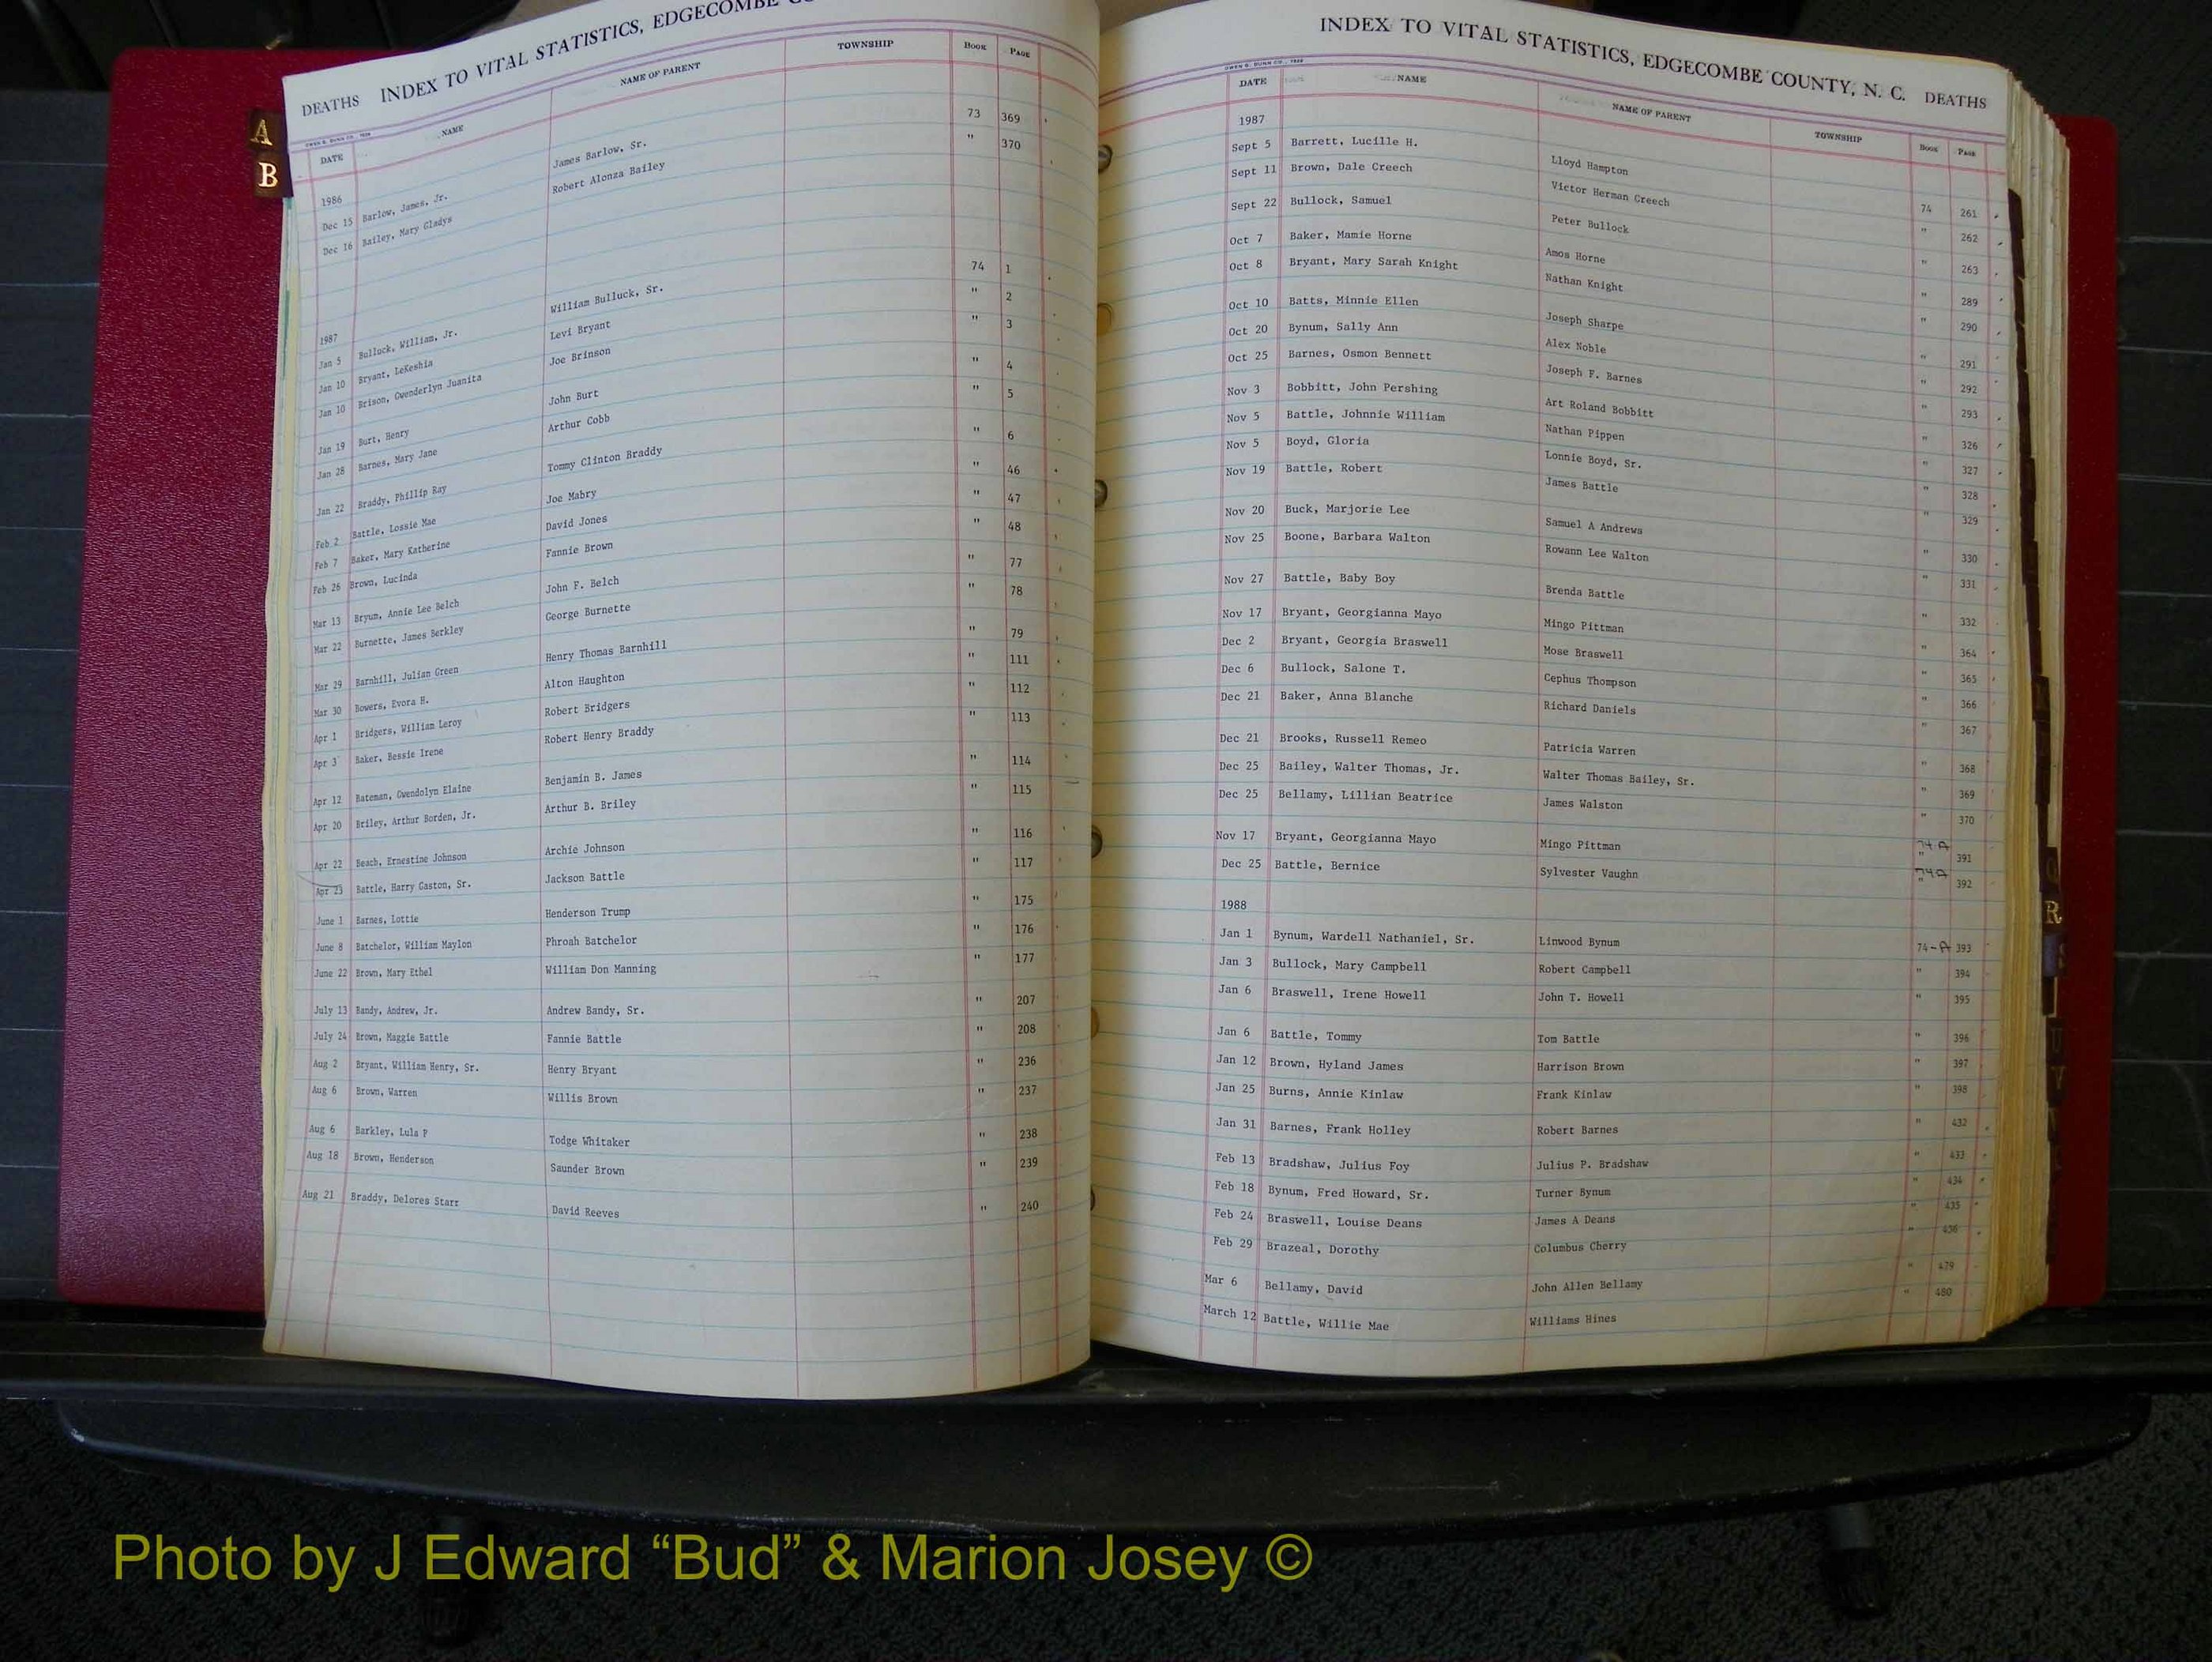 A
B
DEATHS INDEX TO VITAL STATISTICS, EDGECOMBE
DATE NAME NAME OF PARENT TOWNSHIP BOOK PAGE
1986
Dec 15 Barlow, James, Jr. James Barlow, Sr. 73 369
Dec 16 Bailey, Mary Gladys Robert Alonza Bailey " 370
1987
Jan 5 Bulluck, William, Jr. William Bulluck, Sr. 74 1
Jan 10 Bryant, LeKeshia Levi Bryant " 2
Jan 10 Brison, Gwenderlyn Juanita Joe Brinson " 3
Jan 19 Burt, Henry John Burt " 4
Jan 28 Barnes, Mary Jane Arthur Cobb " 5
Jan 22 Braddy, Phillip Ray Tommy Clinton Braddy " 6
Feb 2 Battle, Lossie Mae Joe Mabry " 46
Feb 7 Baker, Mary Katherine David Jones " 47
Feb 26 Brown, Lucinda Fannie Brown " 48
Mar 13 Bryum, Annie Lee Belch John F. Belch " 77
Mar 22 Burnette, James Berkley George Burnette " 78
Mar 29 Barnhill, Julian Green Henry Thomas Barnhill " 79
Mar 30 Bowers, Evora H. Alton Haughton " 111
Apr 1 Bridgers, William Leroy Robert Bridgers " 112
Apr 3 Baker, Bessie Irene Robert Henry Braddy " 113
Apr 12 Bateman, Gwendolyn Elaine Benjamin B. James " 114
Apr 20 Briley, Arthur Borden, Jr. Arthur B. Briley " 115
Apr 22 Beach, Ernestine Johnson Archie Johnson " 116
Apr 23 Battle, Harry Gaston, Sr. Jackson Battle " 117
June 1 Barnes, Lottie Henderson Trump " 175
June 8 Batchelor, William Maylon Phroah Batchelor " 176
June 22 Brown, Mary Ethel William Don Manning " 177
July 13 Bandy, Andrew, Jr. Andrew Bandy, Sr. " 207
July 24 Brown, Maggie Battle Fannie Battle " 208
Aug 2 Bryant, William Henry, Sr. Henry Bryant " 236
Aug 6 Brown, Warren Willis Brown " 237
Aug 6 Barkley, Lula P Todge Whitaker " 238
Aug 18 Brown, Henderson Saunder Brown " 239
Aug 21 Braddy, Delores Starr David Reeves " 240
INDEX TO VITAL STATISTICS, EDGECOMBE COUNTY, N. C. DEATHS
DATE NAME NAME OF PARENT TOWNSHIP BOOK PAGE
1987
Sept 5 Barrett, Lucille H. Lloyd Hampton 74 261
Sept 11 Brown, Dale Creech Victor Herman Creech " 262
Sept 22 Bullock, Samuel Peter Bullock " 263
Oct 7 Baker, Mamie Horne Amos Horne " 289
Oct 8 Bryant, Mary Sarah Knight Nathan Knight " 290
Oct 10 Batts, Minnie Ellen Joseph Sharpe " 291
Oct 20 Bynum, Sally Ann Alex Noble " 292
Oct 25 Barnes, Osmon Bennett Joseph F. Barnes " 293
Nov 3 Bobbitt, John Pershing Art Roland Bobbitt " 326
Nov 5 Battle, Johnnie William Nathan Pippen " 327
Nov 5 Boyd, Gloria Lonnie Boyd, Sr. " 328
Nov 19 Battle, Robert James Battle " 329
Nov 20 Buck, Marjorie Lee Samuel A Andrews " 330
Nov 25 Boone, Barbara Walton Rowann Lee Walton " 331
Nov 27 Battle, Baby Boy Brenda Battle " 332
Nov 17 Bryant, Georgianna Mayo Mingo Pittman " 364
Dec 2 Bryant, Georgia Braswell Mose Braswell " 365
Dec 6 Bullock, Salone T. Cephus Thompson " 366
Dec 21 Baker, Anna Blanche Richard Daniels " 367
Dec 21 Brooks, Russell Remeo Patricia Warren " 368
Dec 25 Bailey, Walter Thomas, Jr. Walter Thomas Bailey, Sr. " 369
Dec 25 Bellamy, Lillian Beatrice James Walston " 370
Nov 17 Bryant, Georgianna Mayo Mingo Pittman 74 A " 391
Dec 25 Battle, Bernice Sylvester Vaughn 74A " 392
1988
Jan 1 Bynum, Wardell Nathaniel, Sr. Linwood Bynum 74-A 393
Jan 3 Bullock, Mary Campbell Robert Campbell " 394
Jan 6 Braswell, Irene Howell John T. Howell " 395
Jan 6 Battle, Tommy Tom Battle " 396
Jan 12 Brown, Hyland James Harrison Brown " 397
Jan 25 Burns, Annie Kinlaw Frank Kinlaw " 398
Jan 31 Barnes, Frank Holley Robert Barnes " 432
Feb 13 Bradshaw, Julius Foy Julius P. Bradshaw " 433
Feb 18 Bynum, Fred Howard, Sr. Turner Bynum " 434
Feb 24 Braswell, Louise Deans James A Deans " 435
Feb 29 Brazeal, Dorothy Columbus Cherry " 436
Mar 6 Bellamy, David John Allen Bellamy " 479
March 12 Battle, Willie Mae Williams Hines " 480
R
Photo by J Edward “Bud” & Marion Josey ©